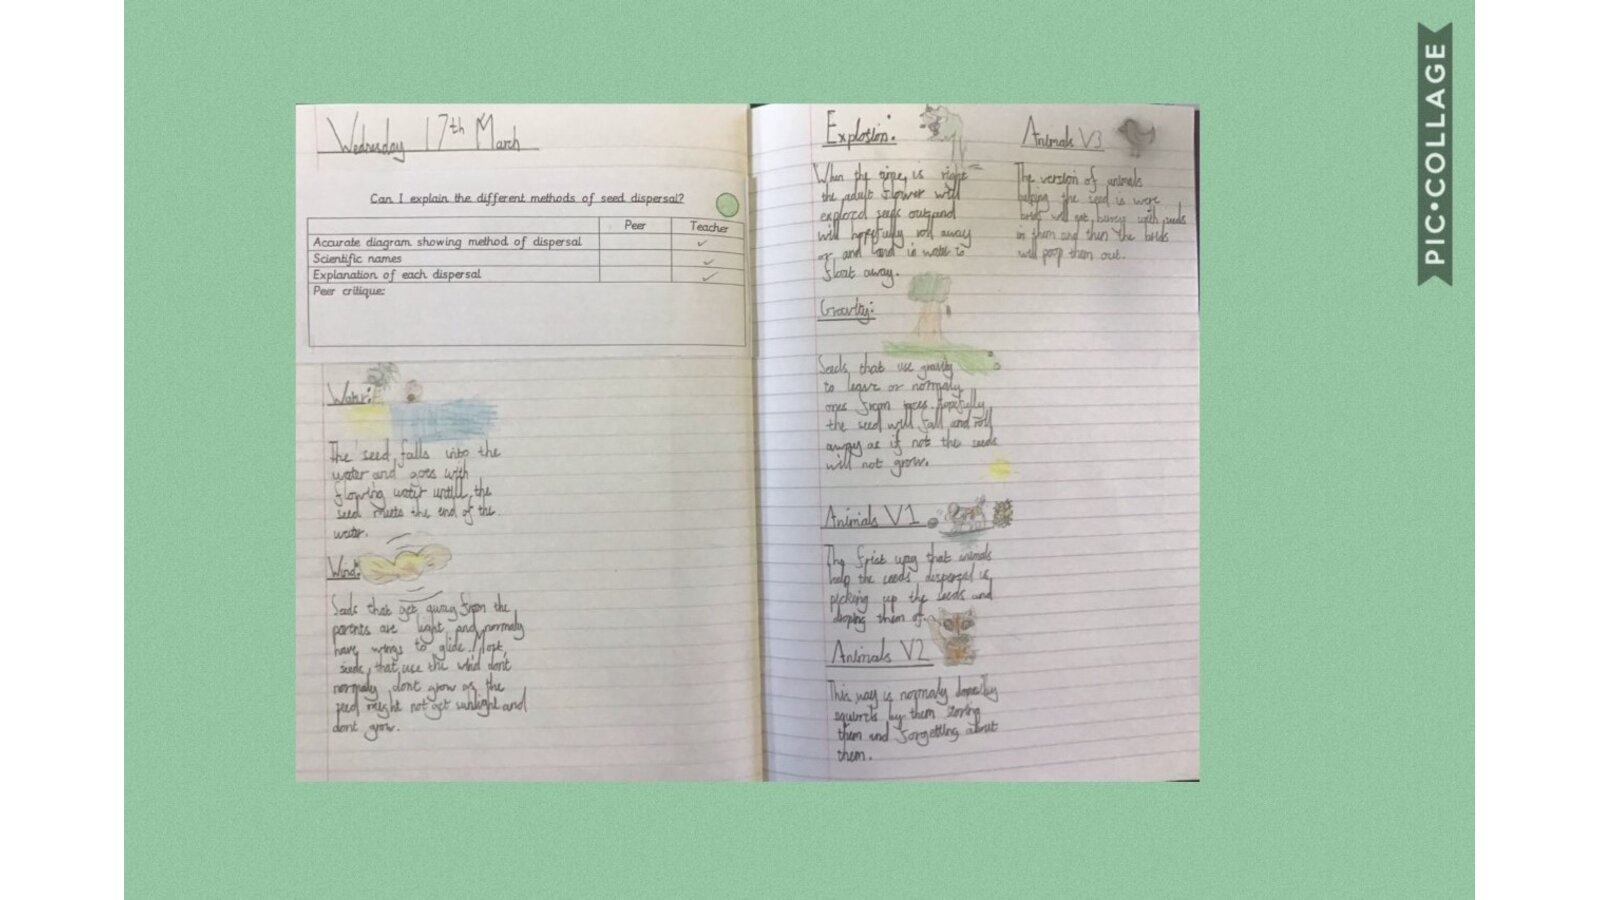 Wednesday 17th March
Can I explain the different methods of seed dispersal?
Peer Teacher
Accurate diagram showing method of dispersal
Scientific names
Explanation of each dispersal
Peer critique:
Water:
The seed falls into the
water and goes with
flowing water untill the
seed meets the end of the
water.
Wind:
Seeds that get away from the
parents are light and normaly
have wings to glide. Most
seeds that use the wind don't
normaly dont grow as the
seed might not get sunlight and
dont grow.
Explosion:
When the time is right
the adult flower will
explored seeds out and
will hopefully roll away
or and land in water to
float away.
Gravity:
Seeds that use gravity
to leave or normaly
ones from trees hopefully
the seed will fall and roll
away as if not the seeds
will not grow.
Animals V1
The frist way that animals
help the seeds dispersal is
picking up the seeds and
droping them of.
Animals V2
This way is normaly done by
squirrels by them storing
them and forgetting about
them.
Animals V3
The version of animals
helping the seed is were
birds will eat berrys with seeds
in them and then the birds
will poop them out.
PIC•COLLAGE